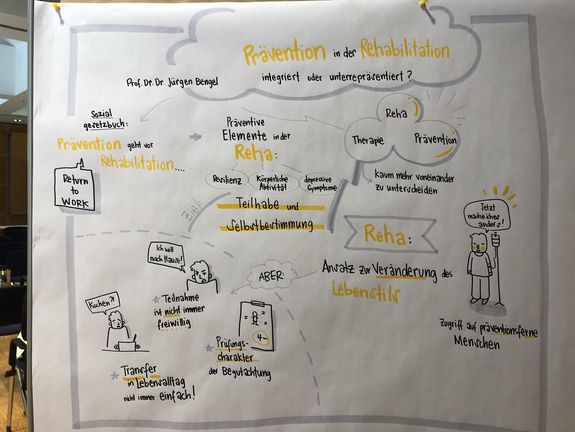 Prävention in der Rehabilitation
integriert oder unterrepräsentiert?
Prof. Dr. Dr. Jürgen Bengel
Sozial
gesetzbuch:
Prävention geht vor
Rehabilitation...
Return
to
WORK
Präventive
Elemente in der
Reha:
Resilienz
Körperliche
Aktivität
depressive
Symptome
Ziel:
Teilhabe und
Selbstbestimmung
Reha
Therapie
Prävention
kaum mehr voneinander
zu unterscheiden
Reha:
Ansatz zur Veränderung des
Lebensstils
Jetzt
mache ich es
anders!
Zugriff auf präventionsferne
Menschen
ABER:
Ich will
nach Hause!
Teilnahme
ist nicht immer
freiwillig
Kuchen?!
Transfer
in Lebensalltag
nicht immer einfach!
4-
Prüfungs-
charakter
der Begutachtung